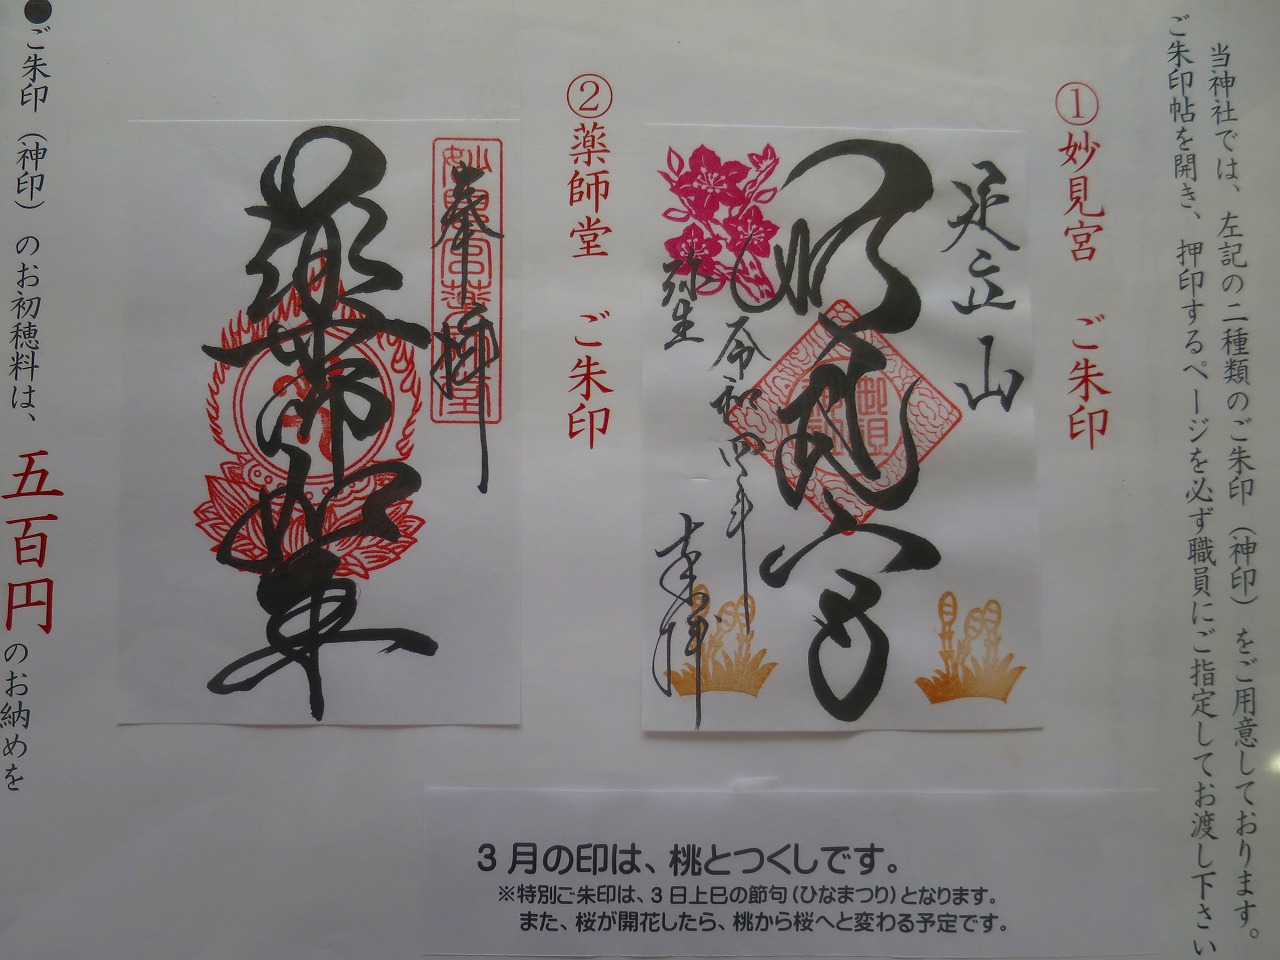 当神社では、左記の二種類のご朱印（神印）をご用意しております。
ご朱印帖を開き、押印するページを必ず職員にご指定してお渡し下さい
①妙見宮　ご朱印
足立山
妙見宮
令和四年
弥生
奉拝
②薬師堂　ご朱印
奉拝
薬師如来
●ご朱印（神印）のお初穂料は、五百円のお納めを
3月の印は、桃とつくしです。
※特別ご朱印は、3日上巳の節句（ひなまつり）となります。
また、桜が開花したら、桃から桜へと変わる予定です。